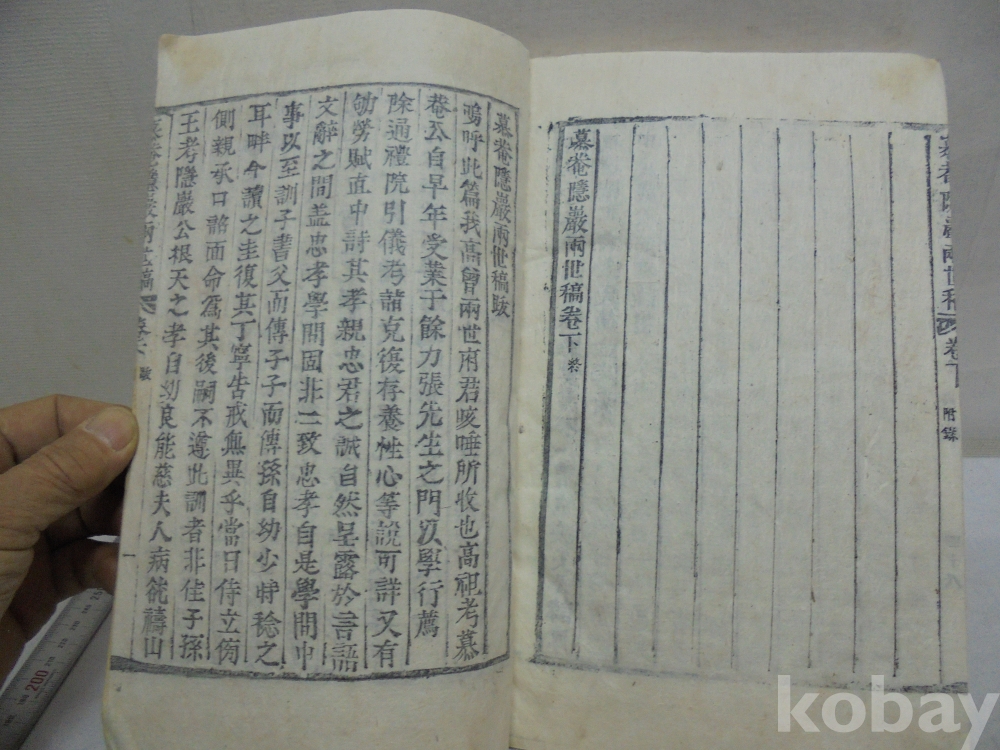 慕菴隱巖兩世稿卷下 附錄
慕菴隱巖兩世稿卷下 終
慕菴隱巖兩世稿跋
嗚呼此篇我高曾兩世府君咳唾所收也高祖考慕
菴公自早年受業于餘力張先生之門以學行薦
除通禮院引儀考諸克復存養性心等說可詳又有
劬勞賦直中詩其孝親忠君之誠自然呈露於言語
文辭之間盖忠孝學問固非二致忠孝自是學問中
事以至訓子書父而傳子子而傳孫自幼少時稔之
耳畔今讀之圭復其丁寧告戒無異乎當日侍立傍
側親承口詔而命爲其後嗣不違此訓者非佳子孫
王考隱巖公根天之孝自幼良能慈夫人病篤禱山
慕菴隱巖兩世稿 卷下 跋 一
200
kobay